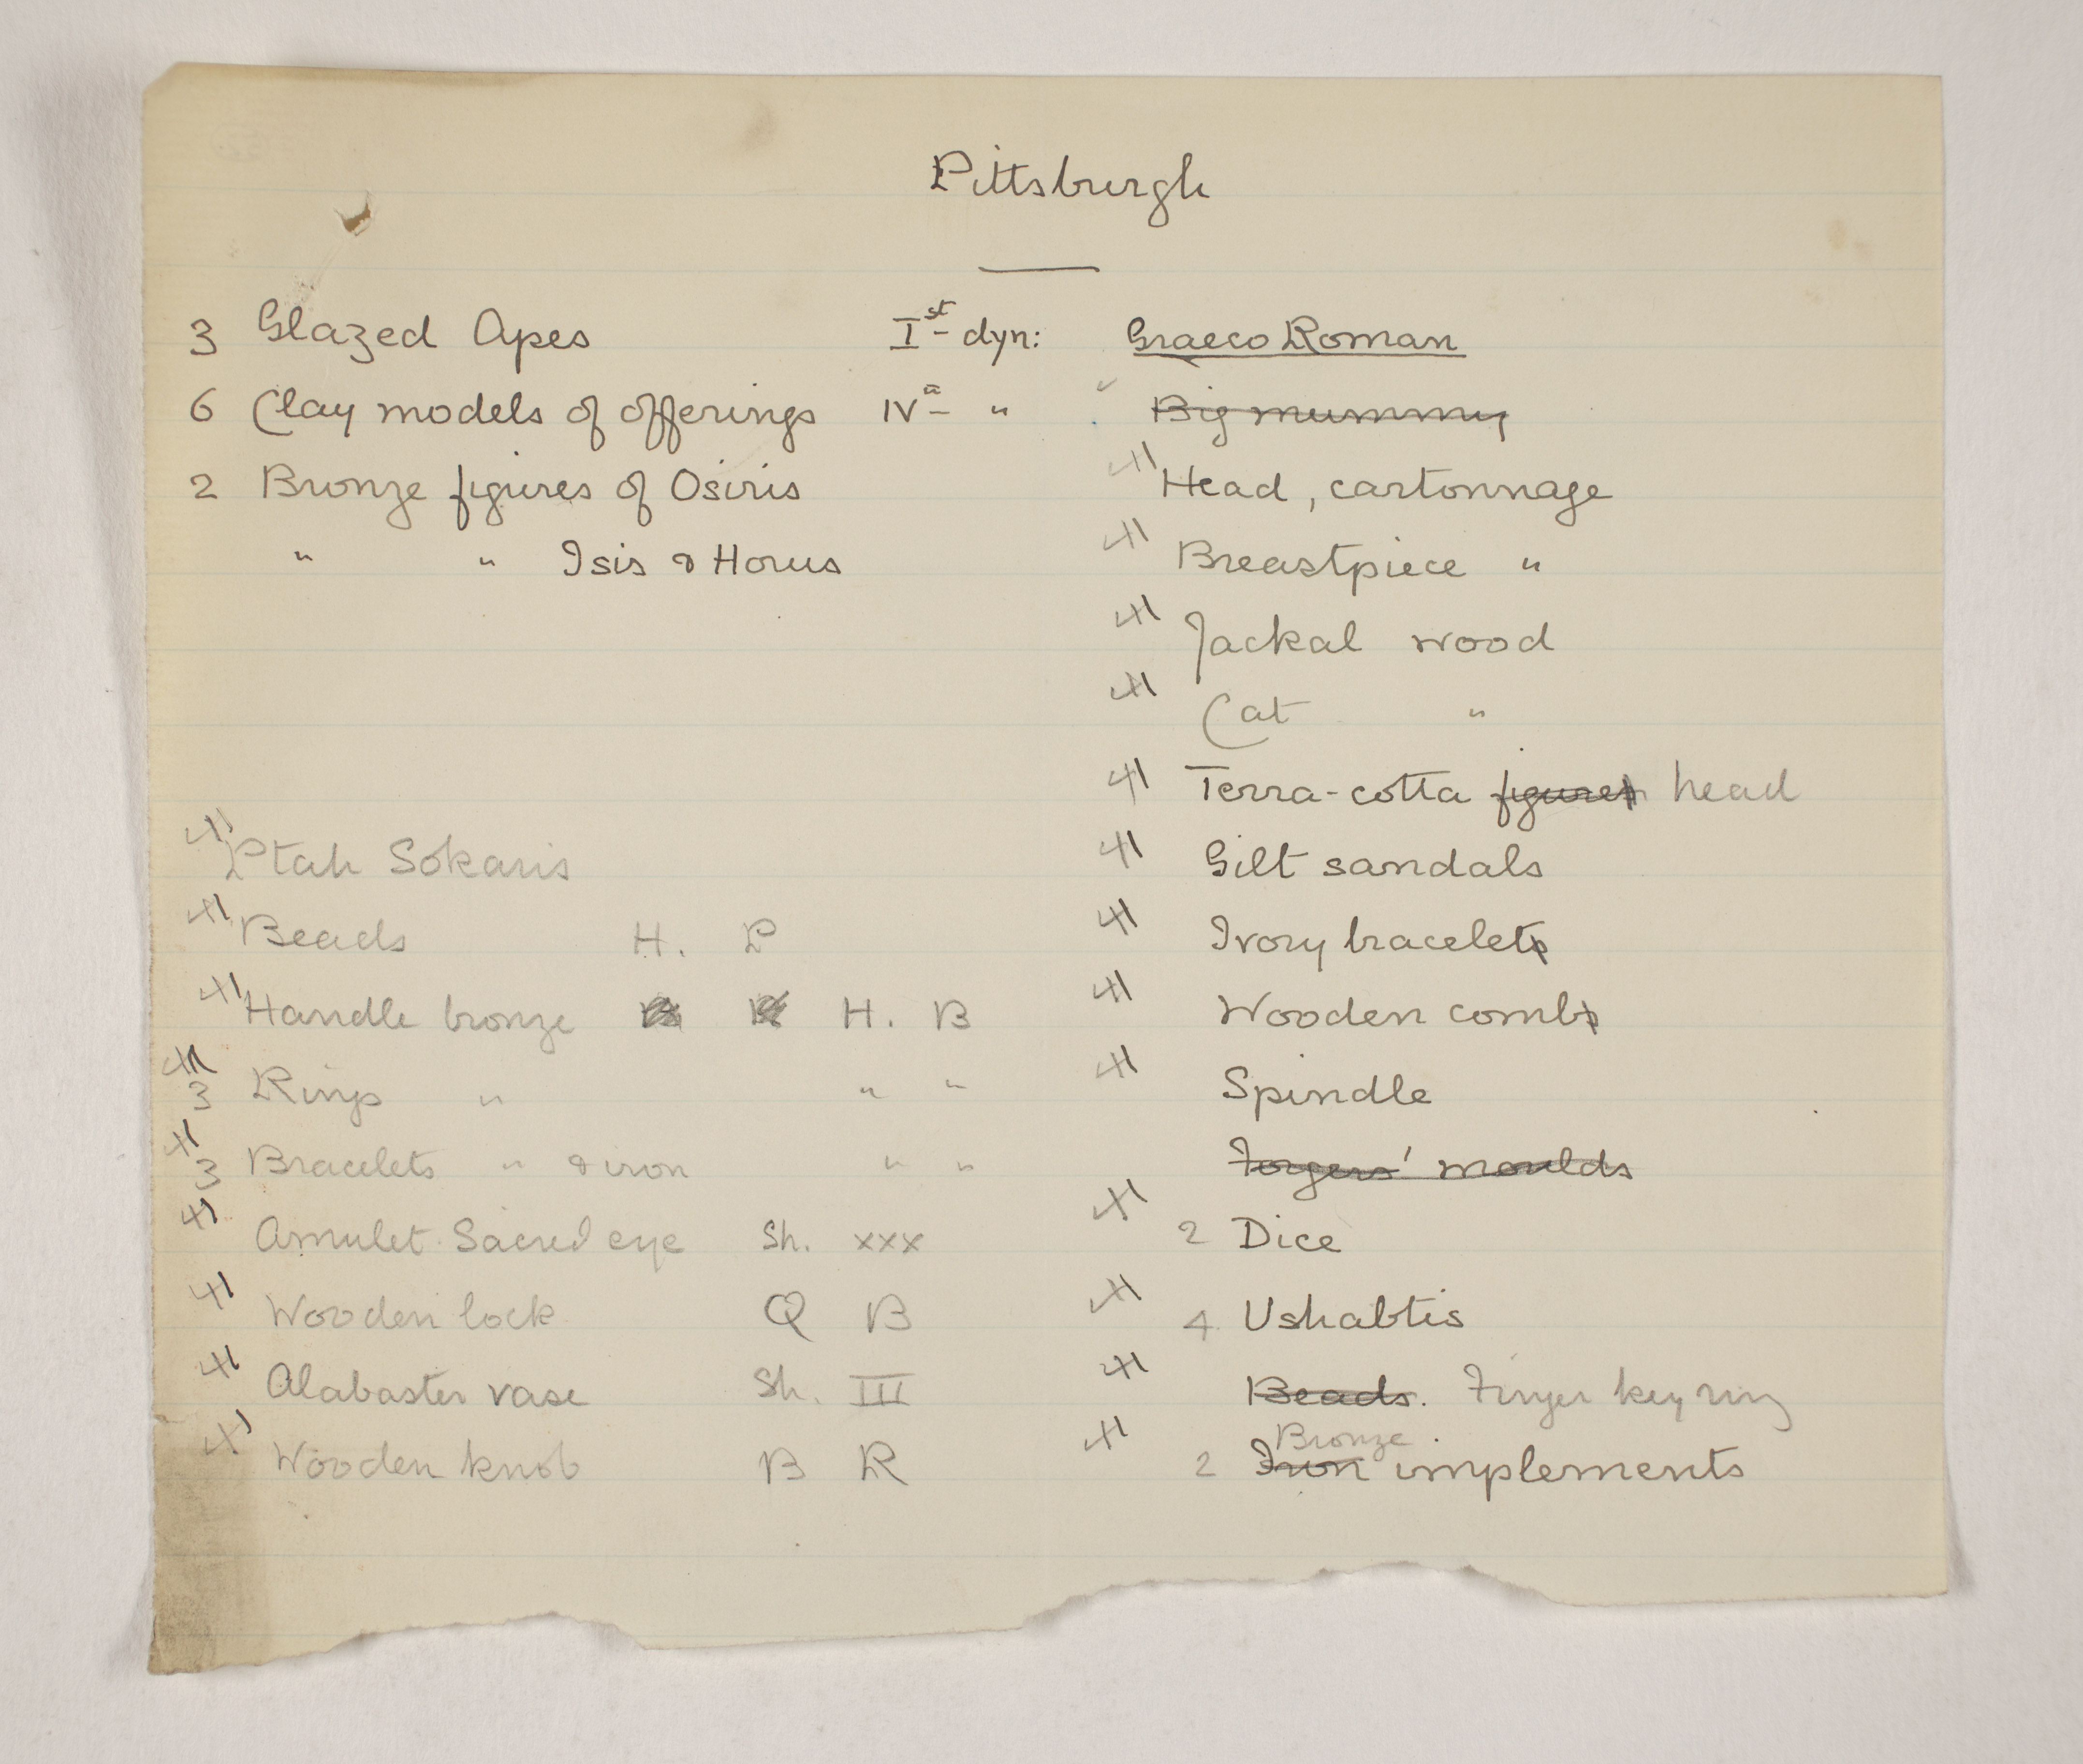 Pittsburgh
3 Glazed Apes Ist dyn:
6 Clay models of offerings IV " "
2 Bronze figures of Osiris
" " Isis & Horus
Ptah Sokaris
Beads H. P
Handle bronze H. B
3 Rings " " "
3 Bracelets " & iron " "
Amulet Sacred eye Sh. xxx
Wooden lock Q B
Alabaster vase Sh. III
Wooden knob B R
Graeco Roman
Big mummy
Head, cartonnage
Breastpiece "
Jackal wood
Cat "
Terra-cotta figures head
Gilt sandals
Ivory bracelets
Wooden combs
Spindle
Forgers' moulds
2 Dice
4 Ushabtis
Beads. Finger key ring
Bronze
2 Iron implements